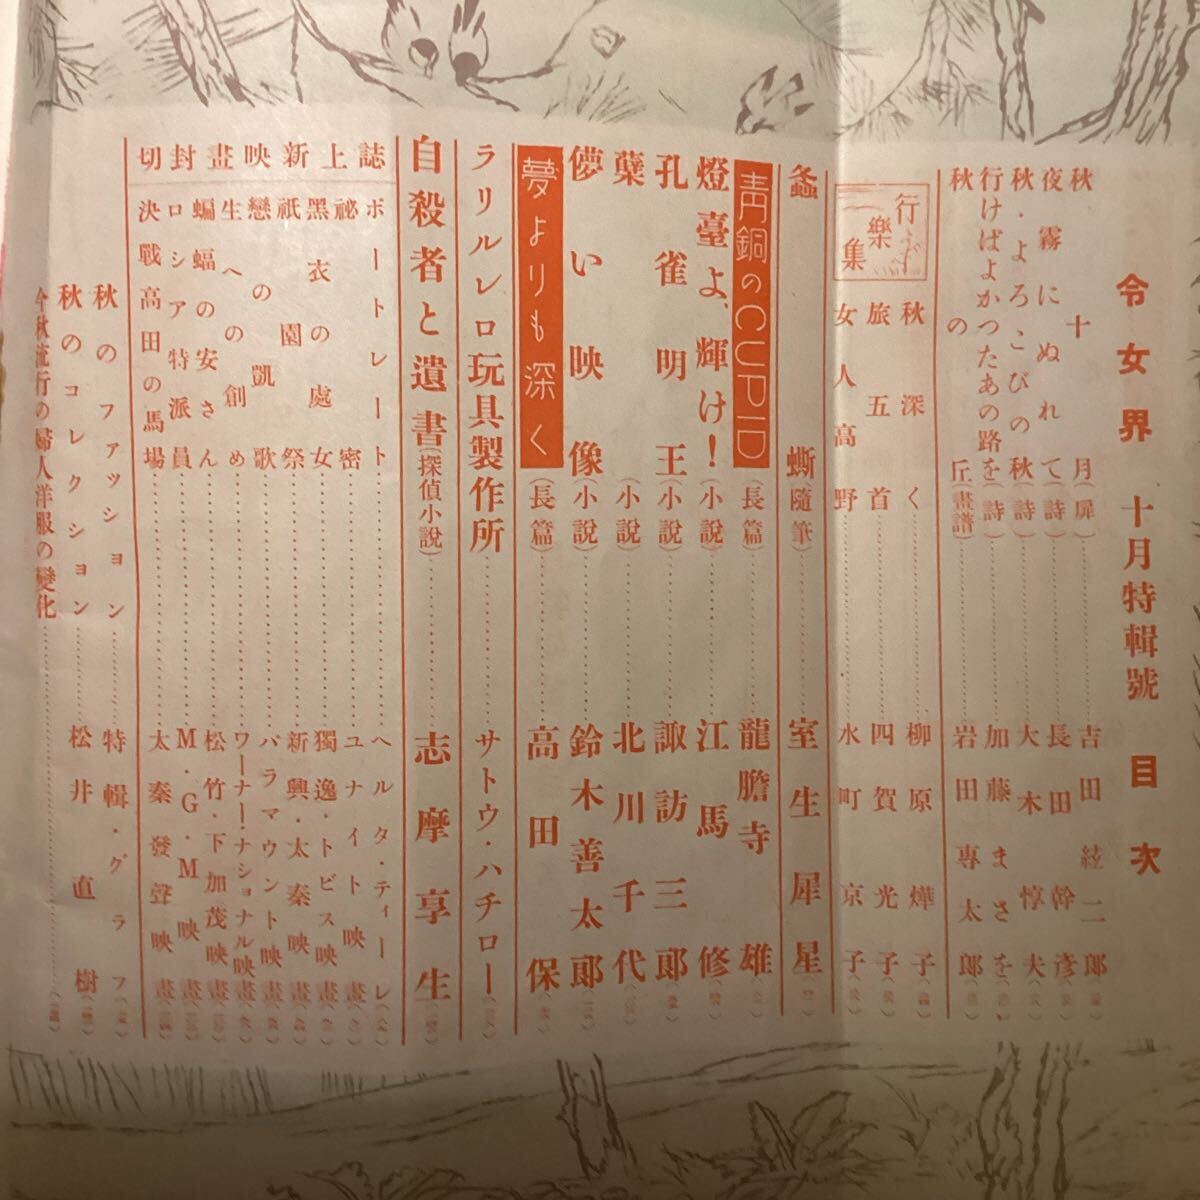 令女界 十月特輯號 目次
秋十月(扉)……吉田絃二郎
夜霧にぬれて(詩)……長田幹彥
秋・よろこびの秋(詩)……大木惇夫
行けばよかつたあの路を(詩)……加藤まさを
秋の丘(畫譜)……岩田專太郎
行樂集
秋深く……柳原燁子
旅五首……四賀光子
女人高野……水町京子
螽蟖(隨筆)……室生犀星
靑銅のCUPID(長篇)……龍膽寺雄
燈臺よ、輝け!(小說)……江馬修
孔雀明王(小說)……諏訪三郎
蘖(小說)……北川千代
儚い映像(小說)……鈴木善太郎
夢よりも深く(長篇)……高田保
ラリルレロ玩具製作所……サトウ・ハチロー
自殺者と遺書(探偵小說)……志摩享生
誌上新映畫封切
ポートレート……ヘルタ・ティーレ
祕密……ユナイト映畫
黑衣の處女……獨逸・トビス映畫
祇園祭……新興・太秦映畫
戀の凱歌……パラマウント映畫
生への創め……ワーナー・ナショナル映畫
蝙蝠の安さん……松竹・下加茂映畫
ロシア特派員……M・G・M映畫
決戰高田の馬場……太秦發聲映畫
秋のファッション……特輯・グラフ
秋のコレクション……松井直樹
今秋流行の婦人洋服の變化